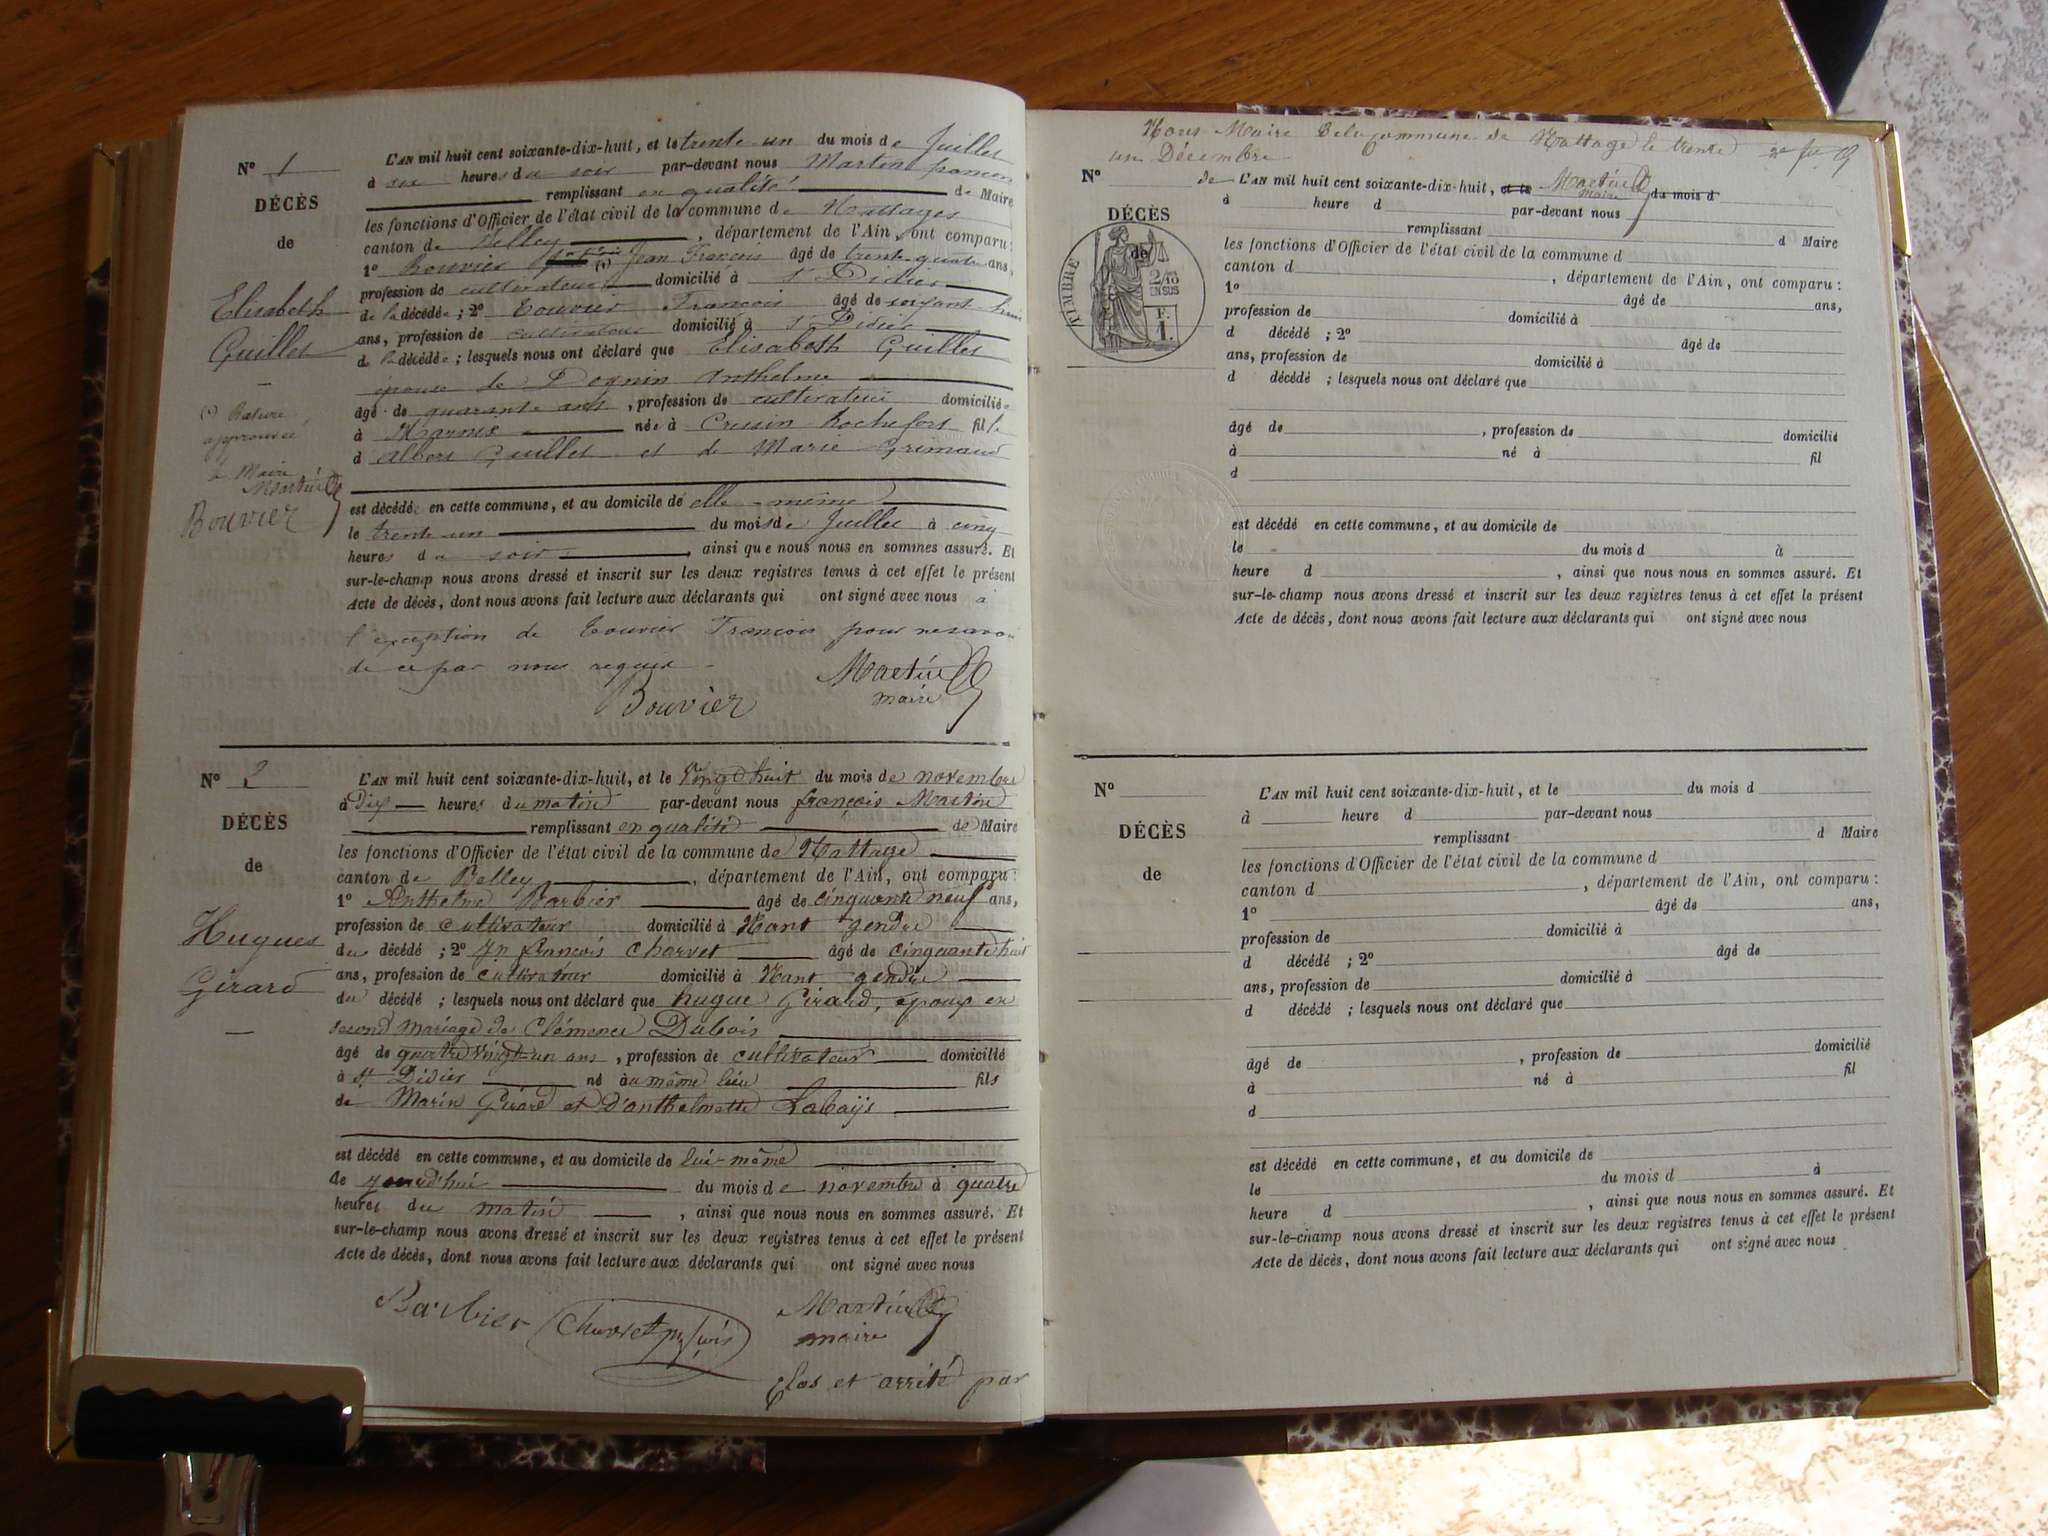 N° 1
DÉCÈS
de
Elisabeth
Guillet
(1) Rature
approuvée
Le Maire
Martin
Bouvier
L'AN mil huit cent soixante-dix-huit, et le trente un du mois de Juillet
à six heures du soir par-devant nous Martin françois
remplissant en qualité de Maire
les fonctions d'Officier de l'état civil de la commune de Nattages
canton de Belley, département de l'Ain, ont comparu :
1° Bouvier (1) Jean François âgé de trente-quatre ans,
profession de cultivateur domicilié à St Didier
de la décédée ; 2° François âgé de soixant
ans, profession de cultivateur domicilié à St Didier
de la décédée ; lesquels nous ont déclaré que Elisabeth Guillet
épouse de Anthelme
âgé de quarante ans, profession de cultivateur domiciliée
à née à Cressin Rochefort fille
d'Albert Guillet et de Marie Grimaud
est décédée en cette commune, et au domicile de elle-même
le trente un du mois de Juillet à cinq
heures du soir, ainsi que nous nous en sommes assuré. Et
sur-le-champ nous avons dressé et inscrit sur les deux registres tenus à cet effet le présent
Acte de décès, dont nous avons fait lecture aux déclarants qui ont signé avec nous à
l'exception de François pour ne savoir
de ce par nous requis
Martin
Bouvier maire
N° 2
DÉCÈS
de
Hugues
Girard
L'AN mil huit cent soixante-dix-huit, et le Vingt huit du mois de novembre
à Dix heures du matin par-devant nous françois Martin
remplissant en qualité de Maire
les fonctions d'Officier de l'état civil de la commune de Nattage
canton de Belley, département de l'Ain, ont comparu :
1° Anthelme Barbier âgé de cinquante neuf ans,
profession de cultivateur domicilié à Nant gendre
du décédé ; 2° Jn françois Charvet âgé de cinquante huit
ans, profession de cultivateur domicilié à Nant gendre
du décédé ; lesquels nous ont déclaré que hugue Girard, époux en
second mariage de Clémence Dubois
âgé de quatre vingt un ans, profession de cultivateur domicilié
à St Didier né au même lieu fils
de Marin Girard et d'anthelmette Labaÿs
est décédé en cette commune, et au domicile de lui-même
du mois de novembre à quatre
heures du matin, ainsi que nous nous en sommes assuré. Et
sur-le-champ nous avons dressé et inscrit sur les deux registres tenus à cet effet le présent
Acte de décès, dont nous avons fait lecture aux déclarants qui ont signé avec nous
Barbier Martin
maire
Clos et arrêté par
Nous Maire De la Commune de Nattage le trente
un Décembre
N° de L'AN mil huit cent soixante-dix-huit, et le Martin du mois d
maire
DÉCÈS
de
TIMBRE
2/10
EN SUS
F.
1.
à heure d par-devant nous
remplissant d Maire
les fonctions d'Officier de l'état civil de la commune d
canton d, département de l'Ain, ont comparu :
1° âgé de ans,
profession de domicilié à
d décédé ; 2° âgé de
ans, profession de domicilié à
d décédé ; lesquels nous ont déclaré que
âgé de, profession de domicilié
à né à fil
d
est décédé en cette commune, et au domicile de
le du mois d à
heure d, ainsi que nous nous en sommes assuré. Et
sur-le-champ nous avons dressé et inscrit sur les deux registres tenus à cet effet le présent
Acte de décès, dont nous avons fait lecture aux déclarants qui ont signé avec nous
N°
DÉCÈS
de
L'AN mil huit cent soixante-dix-huit, et le du mois d
à heure d par-devant nous
remplissant d Maire
les fonctions d'Officier de l'état civil de la commune d
canton d, département de l'Ain, ont comparu :
1° âgé de ans,
profession de domicilié à
d décédé ; 2° âgé de
ans, profession de domicilié à
d décédé ; lesquels nous ont déclaré que
âgé de, profession de domicilié
à né à fil
d
est décédé en cette commune, et au domicile de
le du mois d à
heure d, ainsi que nous nous en sommes assuré. Et
sur-le-champ nous avons dressé et inscrit sur les deux registres tenus à cet effet le présent
Acte de décès, dont nous avons fait lecture aux déclarants qui ont signé avec nous